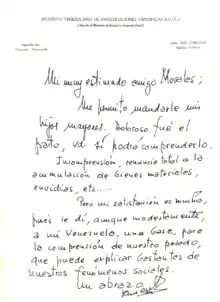 INSTITUTO VENEZOLANO DE INVESTIGACIONES CIENTIFICAS (I.V.I.C.)
Mi muy estimado amigo Morales;
Me permito mandarle mis
hijos mayores. Doloroso fué el
parto, Vd sí podrá comprenderlo.
Incomprensión, renuncia total a la
acumulación de bienes materiales,
envidias, etc....
Pero mi satisfacción es mucha,
pués le dí, aunque modestamente,
a mi Venezuela, una base, para
la comprensión de nuestro pasado,
que puede explicar bastantes de
nuestros fenómenos sociales.
Un abrazo